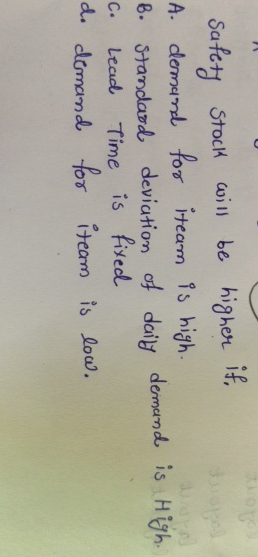 Safety Stock will be higher if,
A. demand for iteam is high.
B. Standard deviation of daily demand is High.
C. Lead Time is fixed
d. demand for iteam is low.